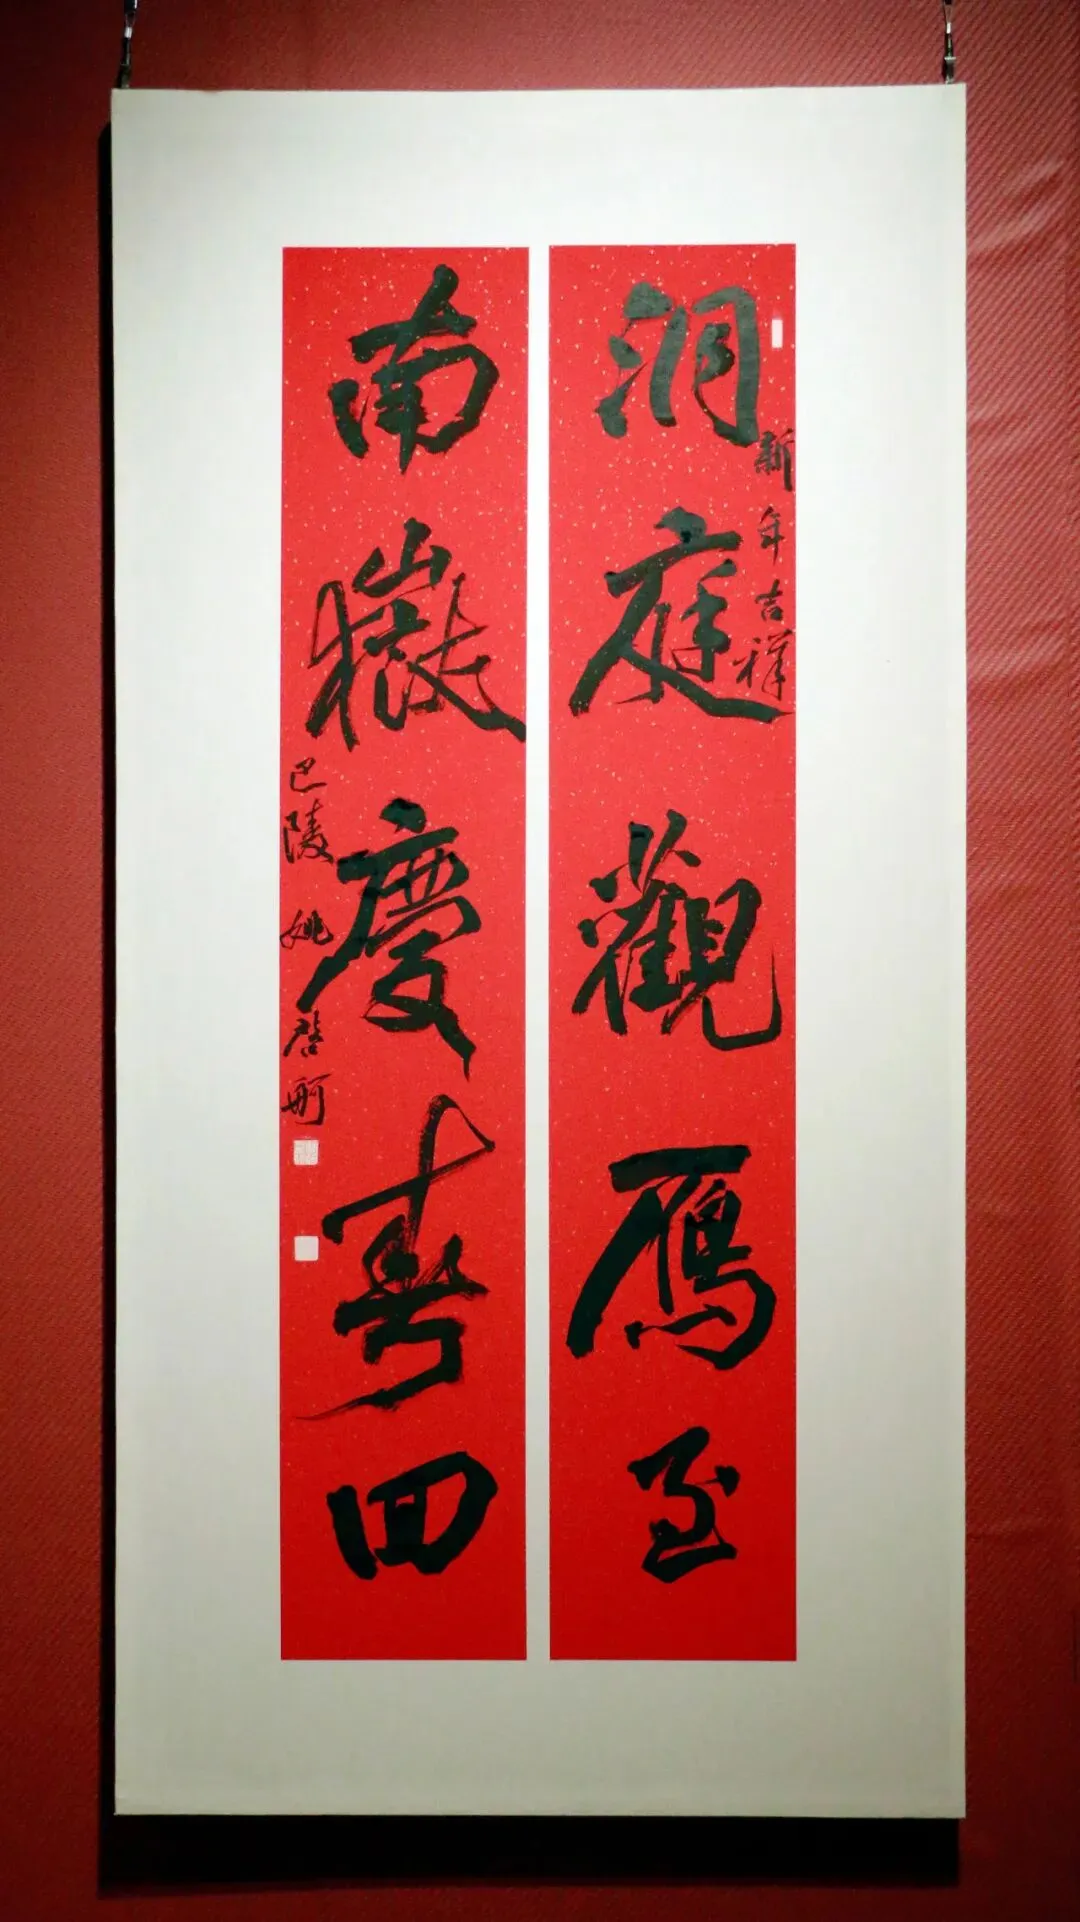 洞庭觀鴈至
新年吉祥
南嶽慶春回
巴陵 姚啓舸